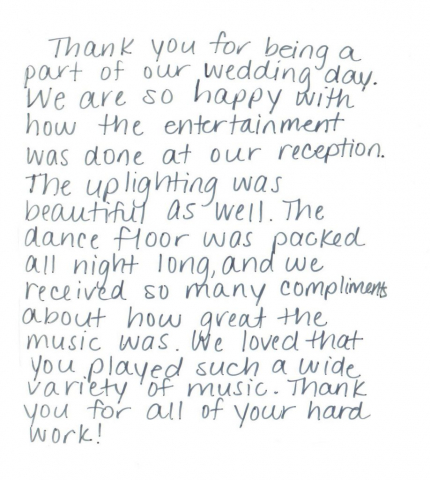 Thank you for being a
part of our wedding day.
We are so happy with
how the entertainment
was done at our reception.
The uplighting was
beautiful as well. The
dance floor was packed
all night long, and we
received so many compliments
about how great the
music was. We loved that
you played such a wide
variety of music. Thank
you for all of your hard
work!